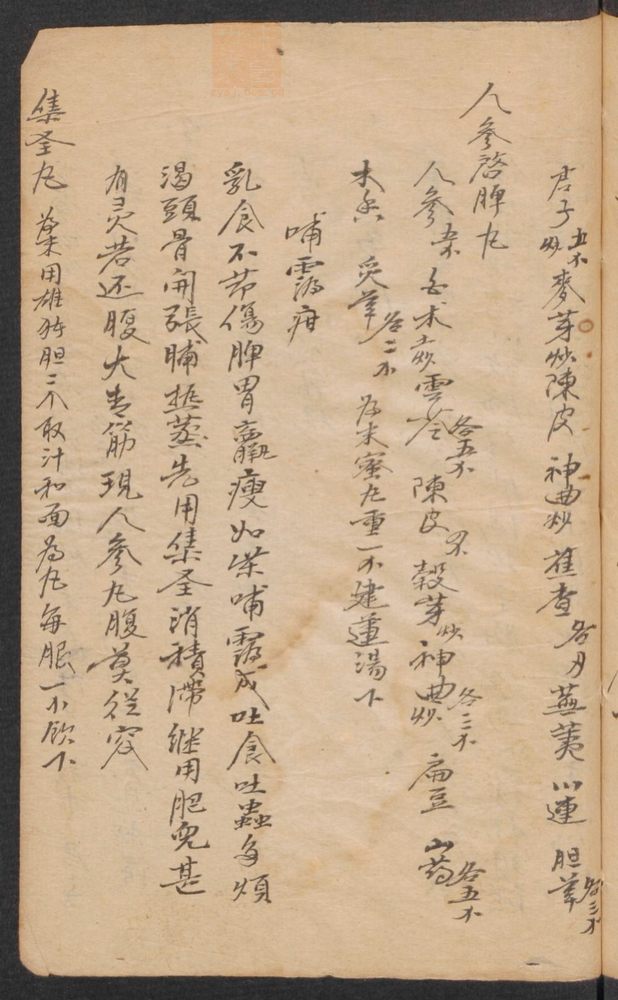 君子五个炒麥芽炒陳皮神曲炒查各 蕪荑川連胆草各三个
人參啓脾丸
人參 白术土炒雲苓各五个陳皮 穀芽炒神曲炒各三个扁豆山药各五个
木香炙草各二个為末蜜丸重一个建蓮湯下
哺露疳
乳食不节傷脾胃羸瘦如柴哺露成吐食吐蟲多煩
渴頭骨開張哺热蒸先用集圣消積滞継用肥兒甚
有灵若还腹大青筋現人參丸服莫従容
集圣丸藥末用雄猪胆二个取汁和面為丸每服一个飲下